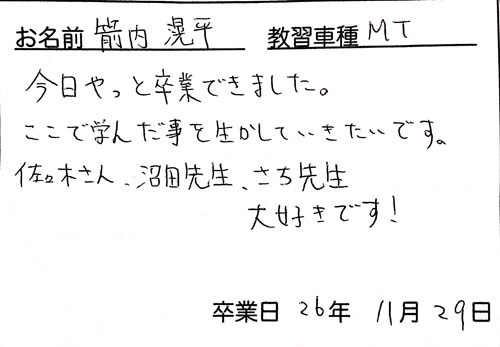 お名前 箭内 滉平 教習車種 MT
今日やっと卒業できました。
ここで学んだ事を生かしていきたいです。
佐々木さん、沼田先生、さち先生
大好きです!
卒業日 26年 11月 29日